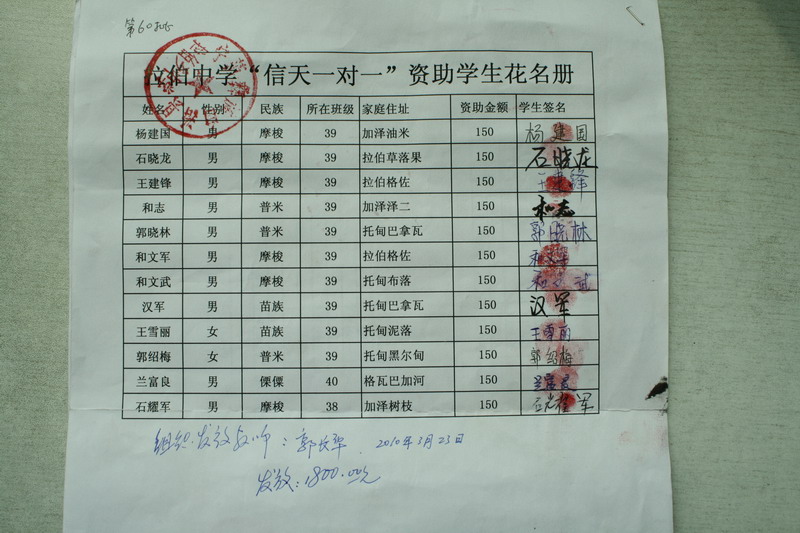 第60
拉伯中学“信天一对一”资助学生花名册
姓名 性别 民族 所在班级 家庭住址 资助金额 学生签名
杨建国 男 摩梭 39 加泽油米 150 杨建国
石晓龙 男 摩梭 39 拉伯草落果 150 石晓龙
王建锋 男 摩梭 39 拉伯格佐 150 王建锋
和志 男 普米 39 加泽泽二 150 和志
郭晓林 男 普米 39 托甸巴拿瓦 150 郭晓林
和文军 男 摩梭 39 拉伯格佐 150 和文军
和文武 男 摩梭 39 托甸布落 150 和文武
汉军 男 苗族 39 托甸巴拿瓦 150 汉军
王雪丽 女 苗族 39 托甸泥落 150 王雪丽
郭绍梅 女 普米 39 托甸黑尔甸 150 郭绍梅
兰富良 男 傈僳 40 格瓦巴加河 150 兰富良
石耀军 男 摩梭 38 加泽树枝 150 石耀军
组织发放教师：郭长华. 2010年3月23日
发放：1800.00元